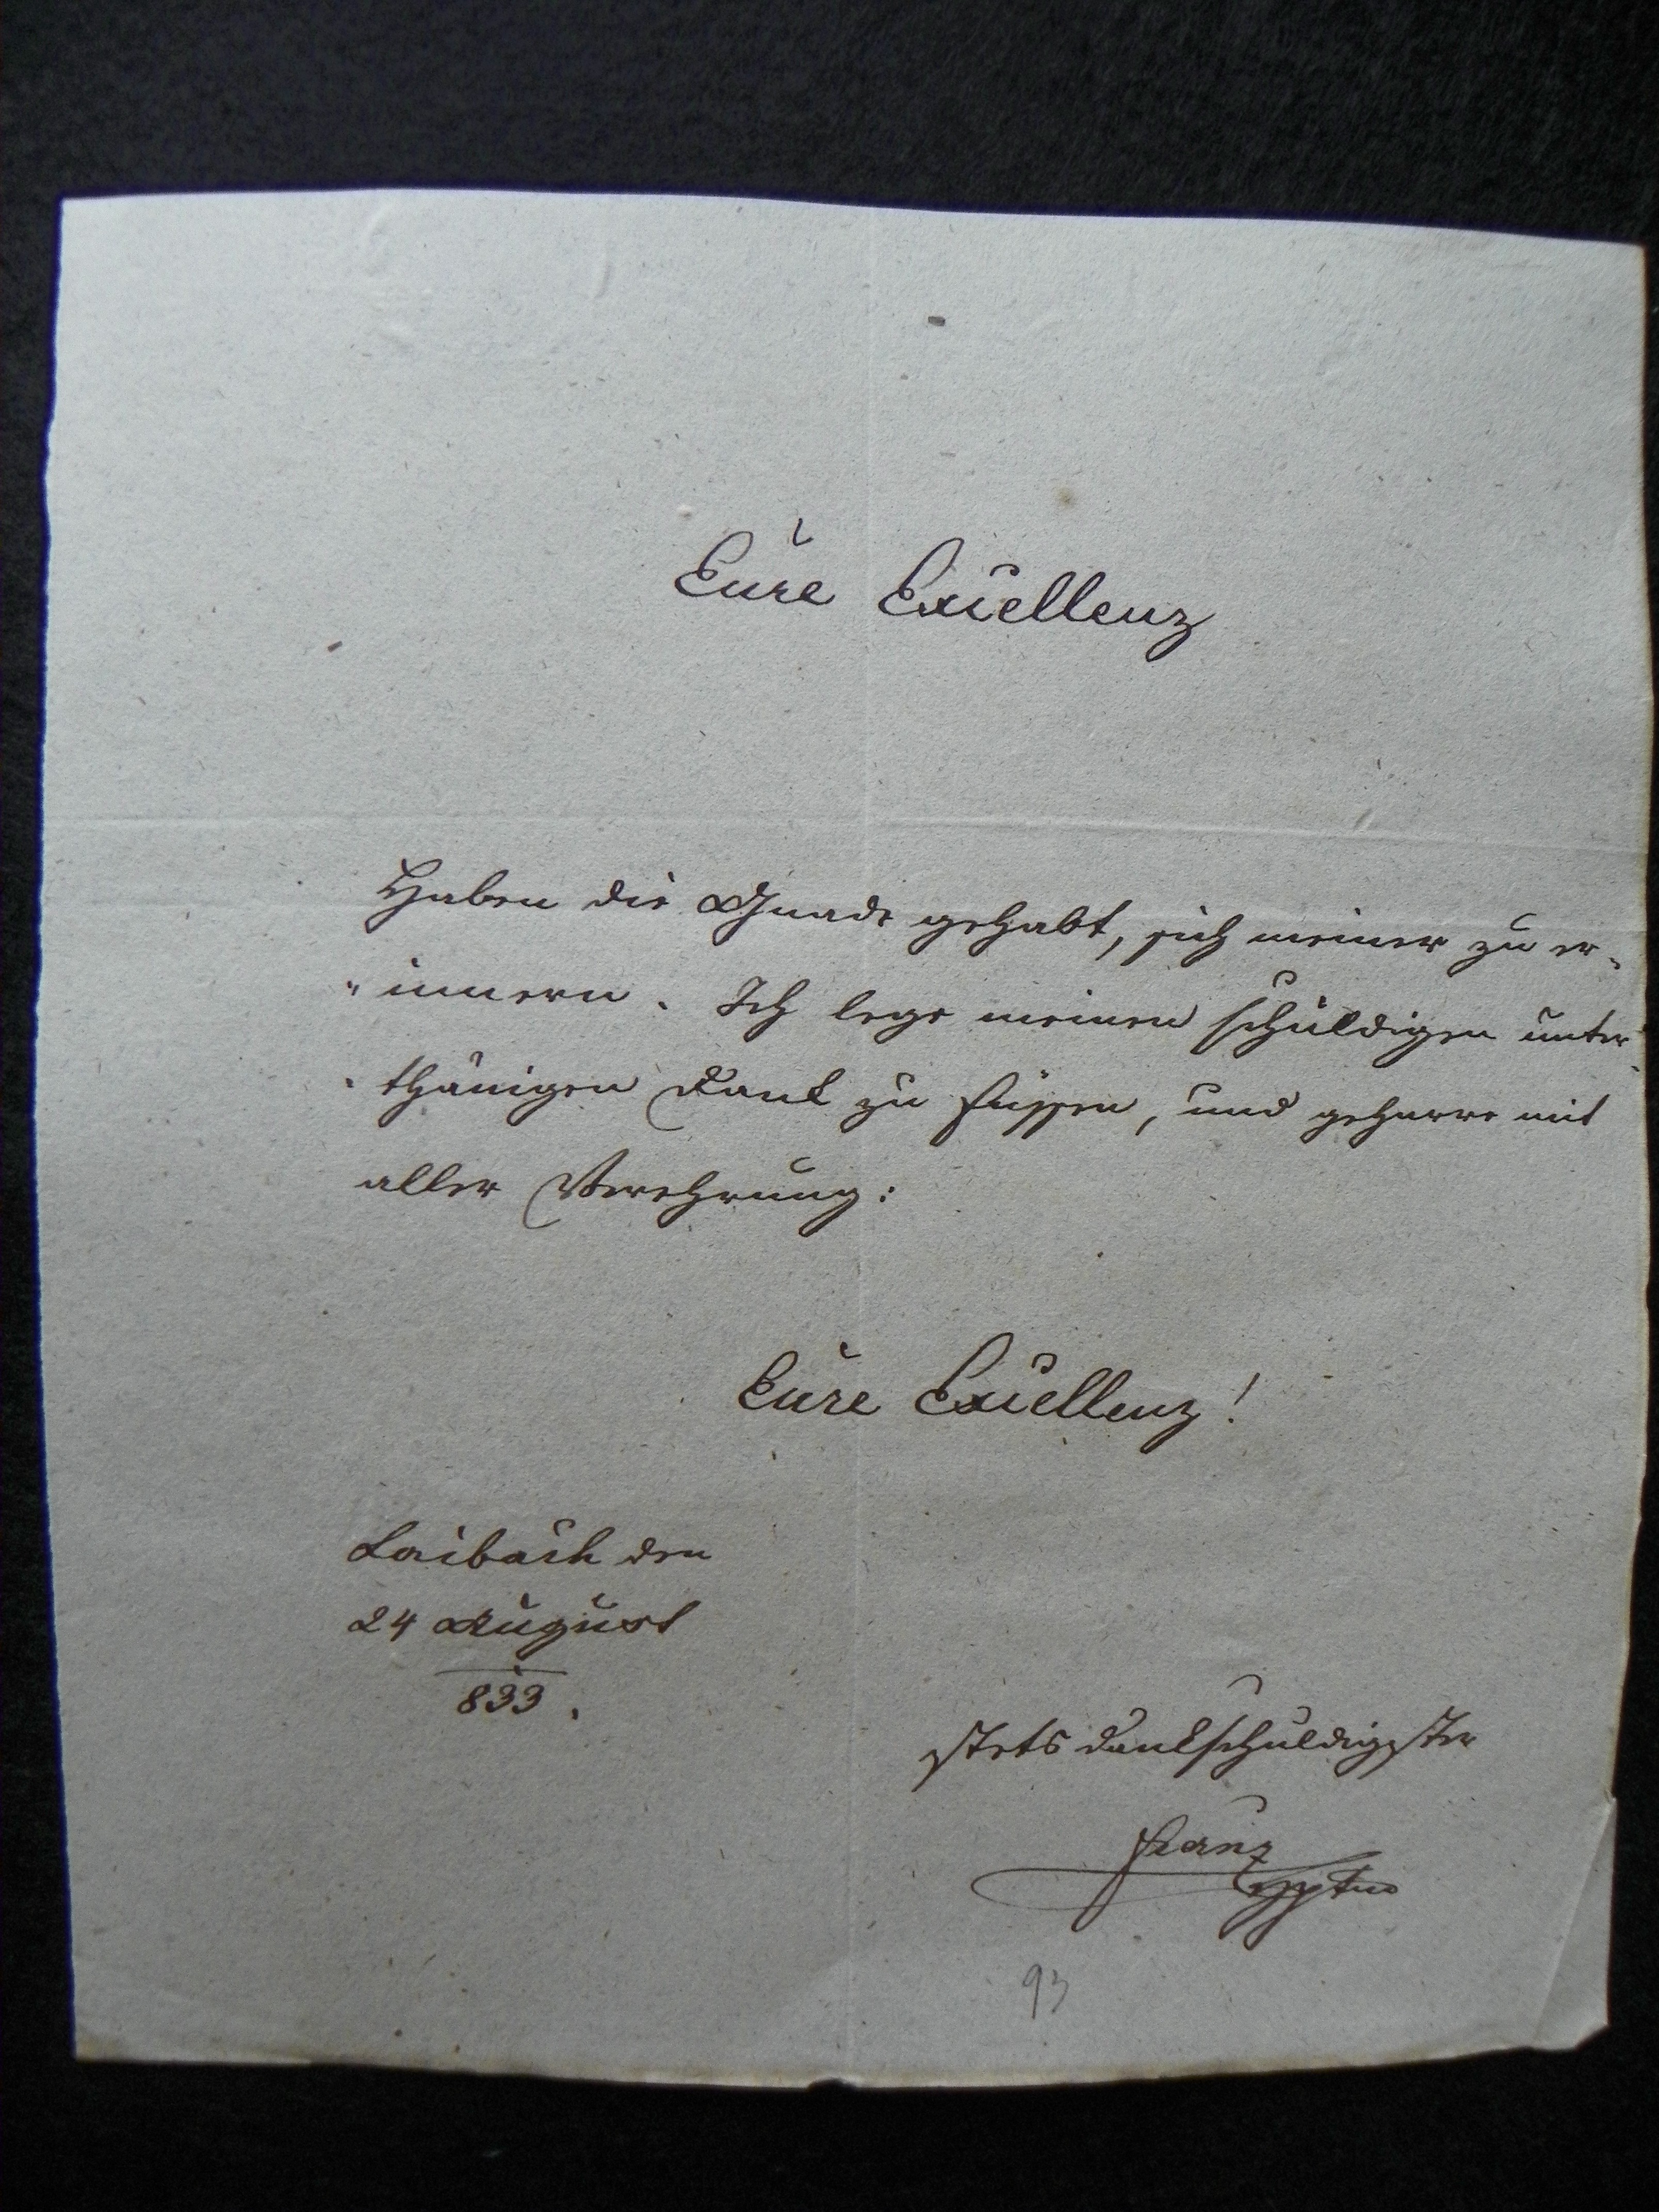 Eure Excellenz
Haben die Gnade gehabt, sich meiner zu er-
-innern. Ich lege meinen schuldigen unter-
-thänigen Dank zu Füssen, und geharre mit
aller Verehrung:
Eure Excellenz!
Laibach den
24 August
833.
stets dankschuldigster
Franz
93